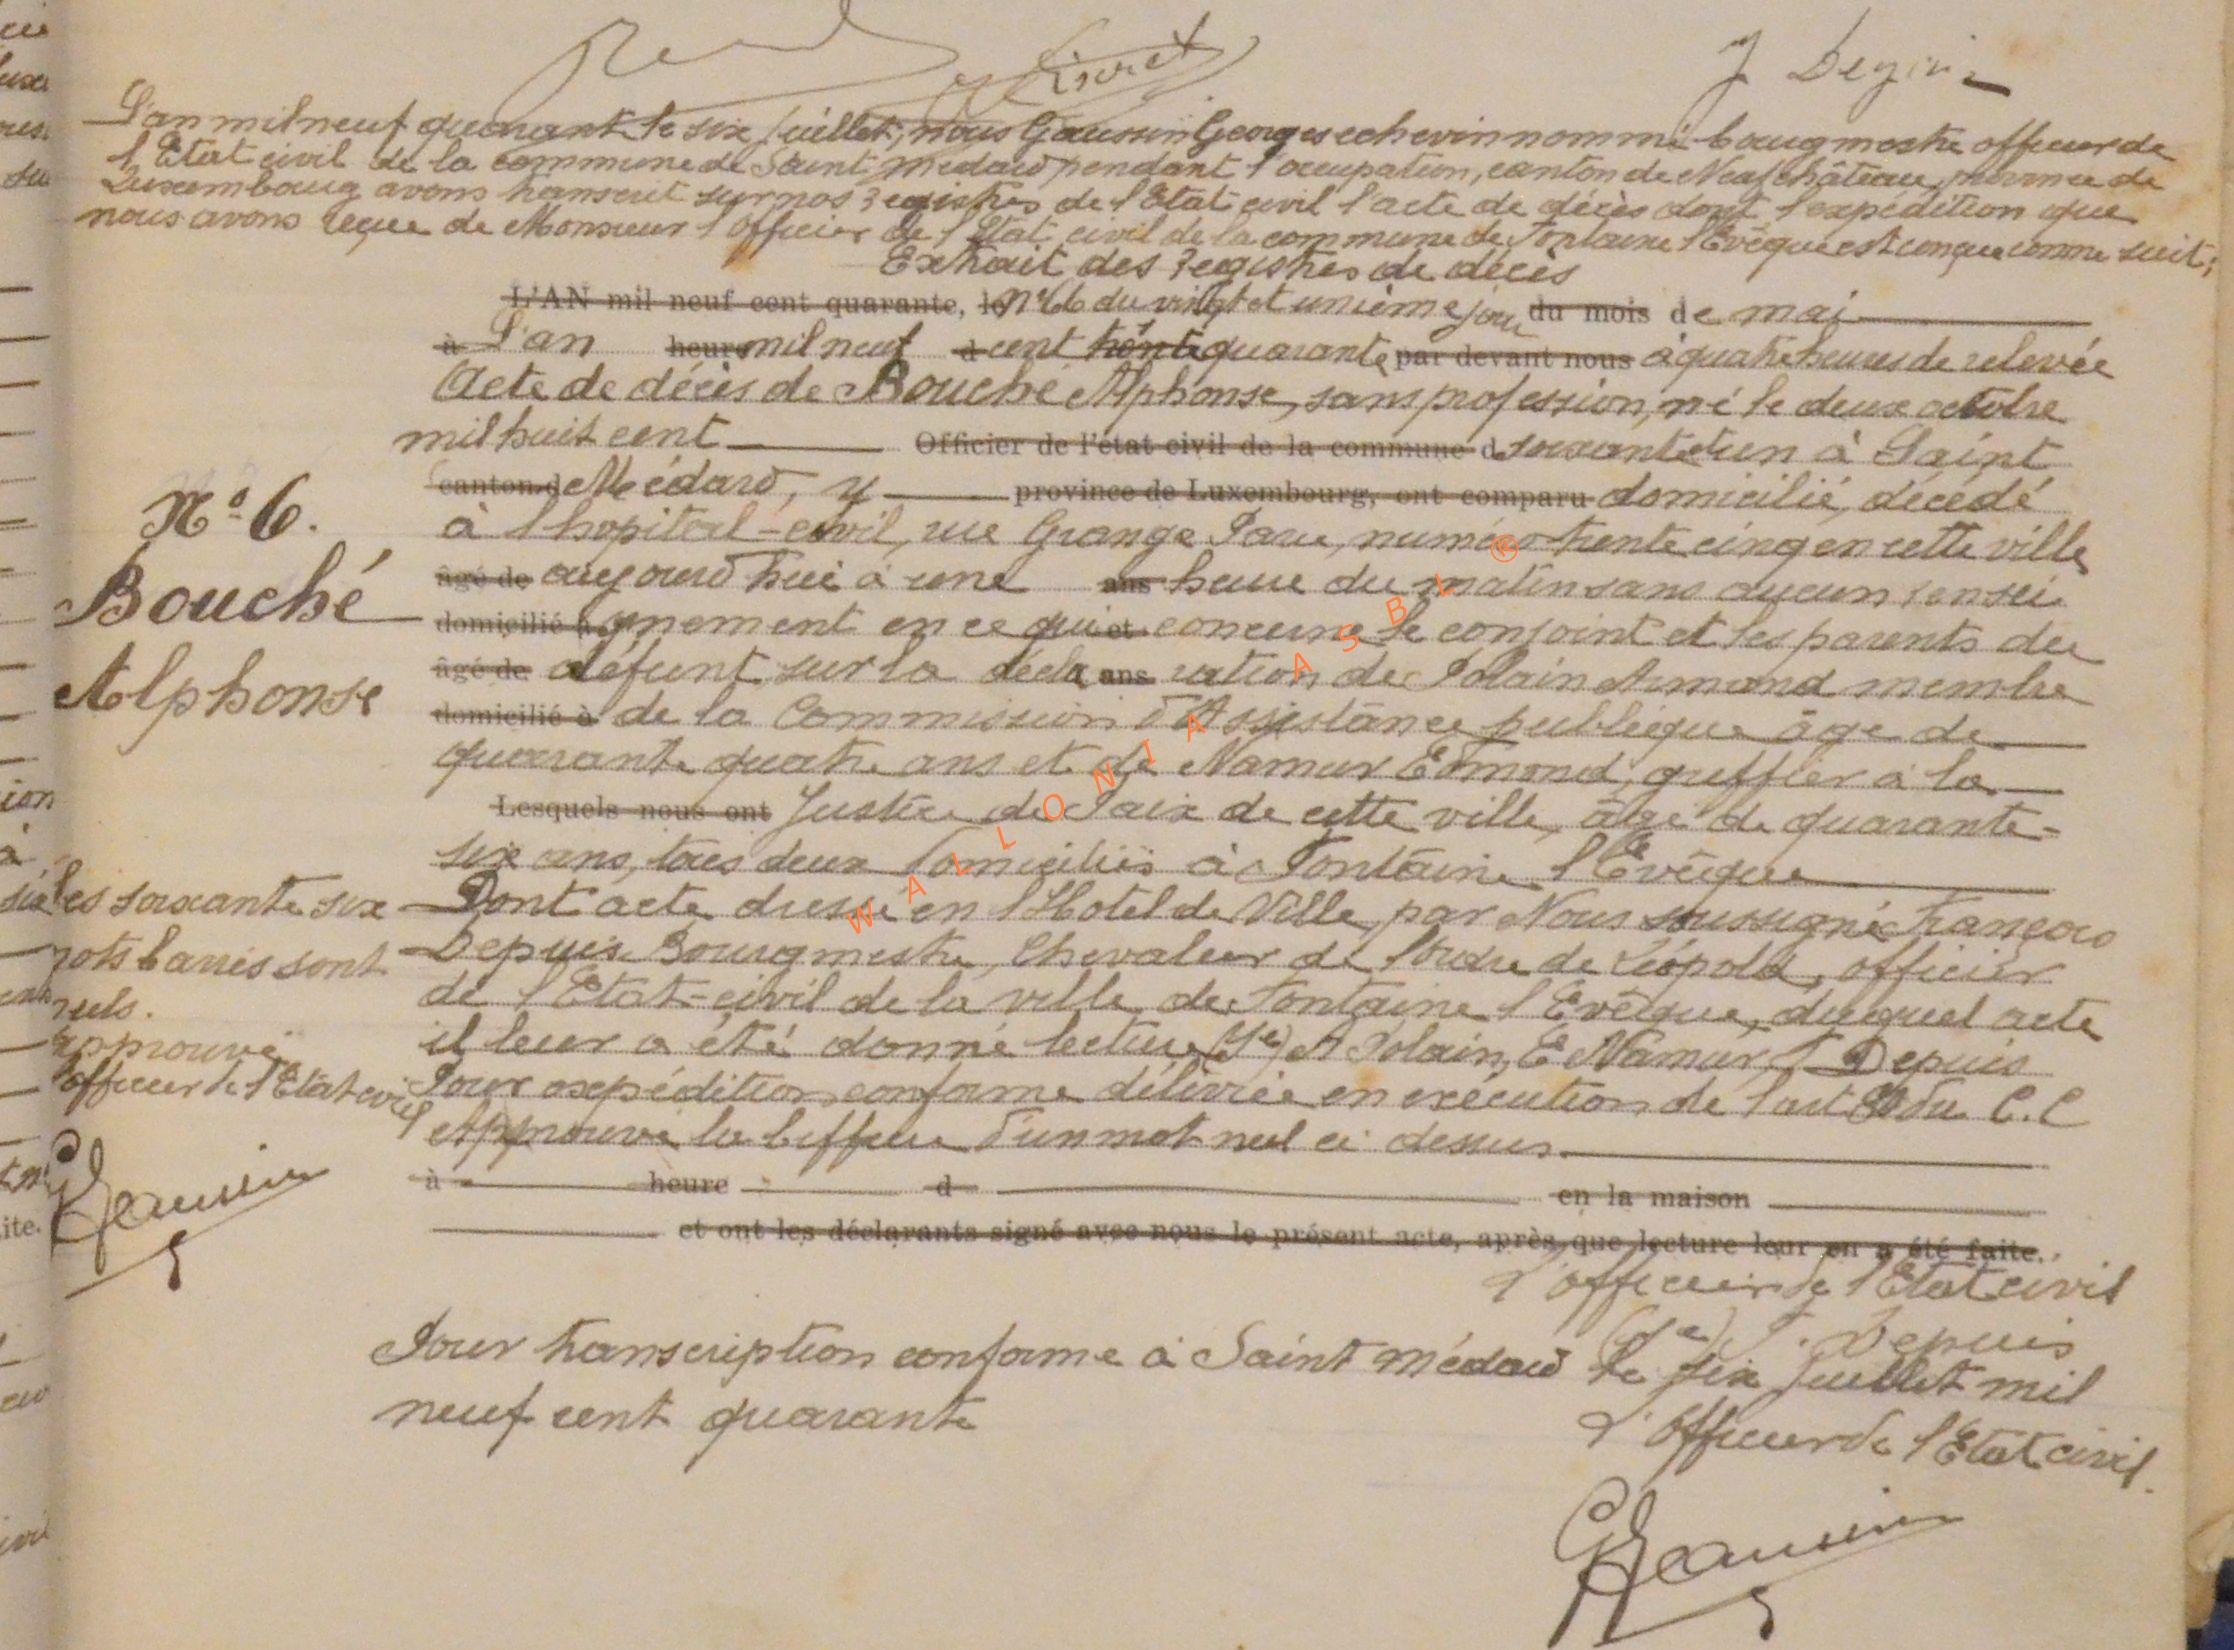 J Degi
L'an mil neuf quarante le six juillet, nous Gaussin Georges echevin nommé bourgmestre officier de
l'Etat civil de la commune de Saint Médard pendant l'occupation, canton de Neufchâteau, province de
Luxembourg avons transcrit sur nos registres de l'Etat civil l'acte de décès dont l'expédition que
nous avons reçue de Monsieur l'Officier de l'Etat civil de la commune de Fontaine l'Evêque est conçue comme suit:
Extrait des registres de décès
L'AN mil neuf cent quarante, le du vingt et unième jour du mois de mai
à L'an heure mil neuf à cent trente quarante par devant nous à quatre heures de relevée
Acte de décès de Bouché Alphonse, sans profession, né le deux octobre
mil huit cent Officier de l'état civil de la commune d soixante et un à Saint
canton de Médard, y province de Luxembourg, ont comparu domicilié, décédé
à l'hopital-civil, rue Grange numéro trente cinq en cette ville
âgé de aujourd'hui à une ans heure du matin sans aucun rensei
domicilié à gnement en ce qui et concerne le conjoint et les parents du
âgé de défunt, sur la décla ans ration de Polain Armand membre
domicilié à de la Commission d'Assistance publique âgé de
quarante quatre ans et de Namur Edmond, greffier à la
Lesquels nous ont Justice de Paix de cette ville, âgé de quarante-
six ans, tous deux domiciliés à Fontaine l'Evêque
Dont acte dressé en l'Hotel de Ville, par Nous soussigné François
Depuis Bourgmestre, Chevalier de l'Ordre de Léopold, officier
de l'Etat-civil de la ville de Fontaine l'Evêque, duquel acte
il leur a été donné lecture (Sé) A Polain, E Namur, F Depuis
Pour expédition conforme délivrée en exécution de l'art 80 du C.C
Approuvé la biffure d'un mot nul ci dessus
à heure d en la maison
et ont les déclarants signé avec nous le présent acte, après que lecture leur en a été faite.
L'officier de l'Etat civil
(Sé) F. Depuis
Pour transcription conforme à Saint Médard le six juillet mil
neuf cent quarante
L'Officier de l'Etat civil.
GGaussin
N° 6.
Bouché
Alphonse
les soixante six
mots barrés sont
nuls.
Approuvé
l'officier de l'Etat civil
GGaussin
WALLONIA ASBL ®